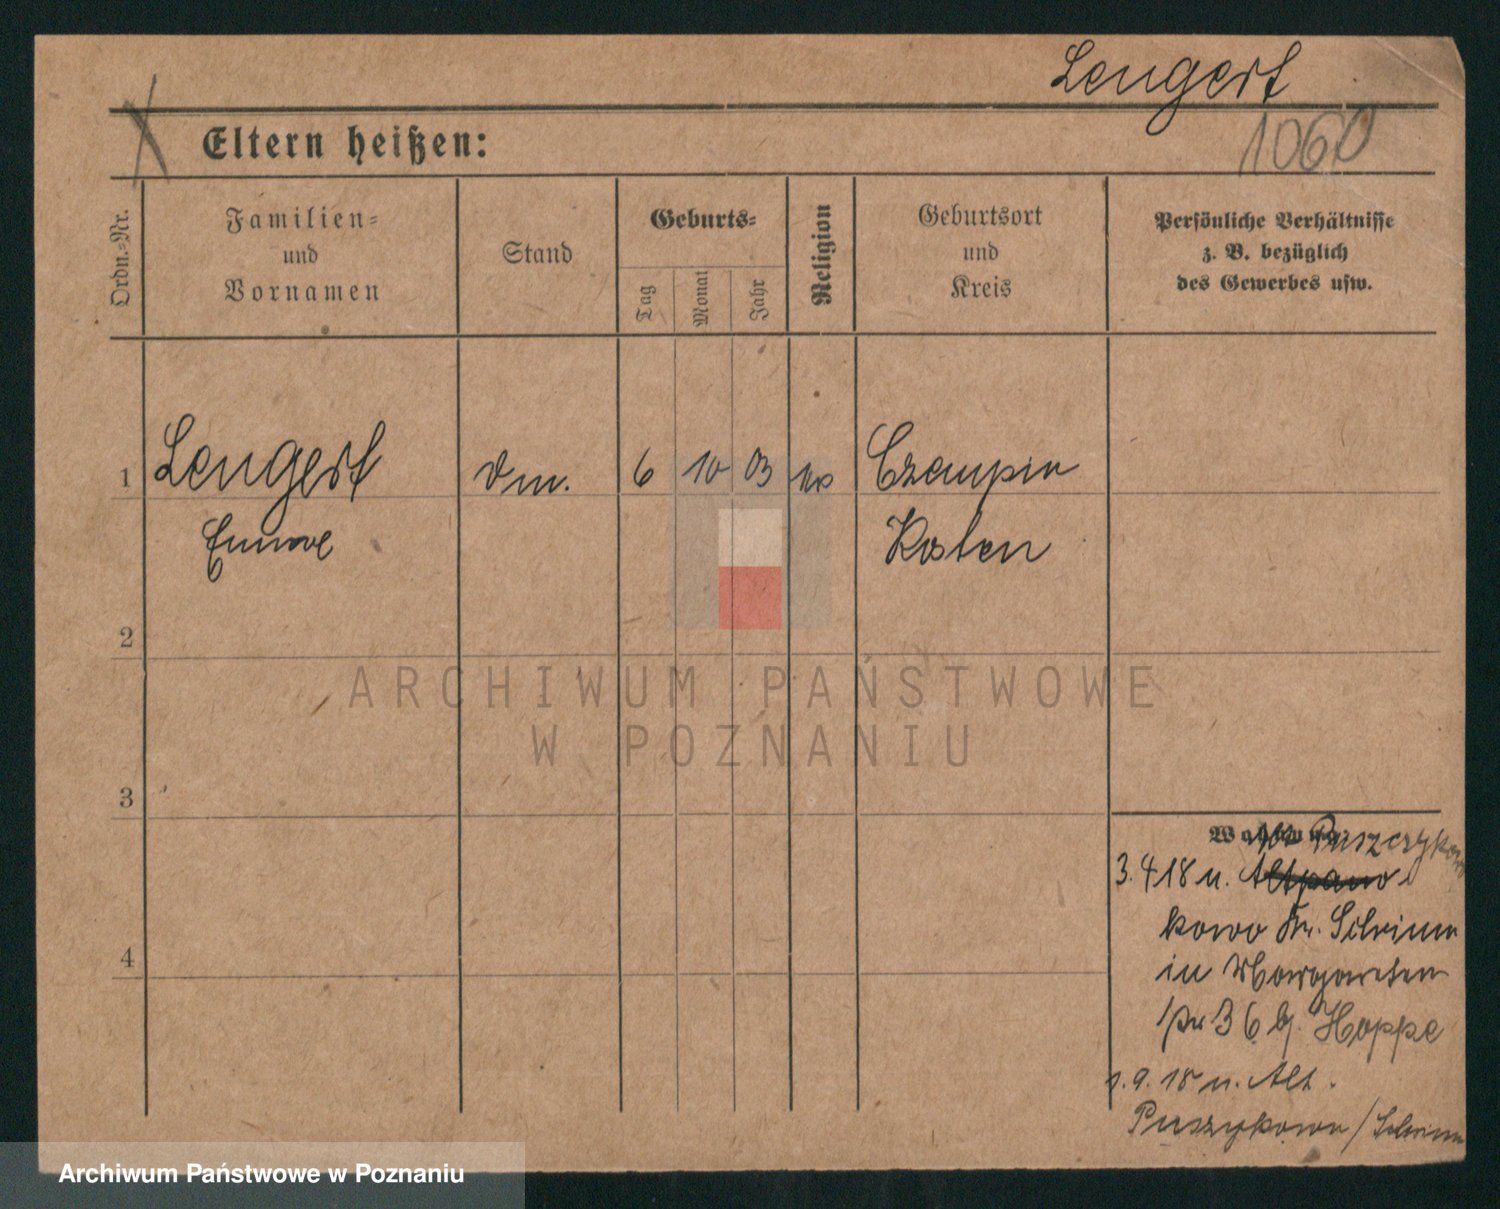 Lengert
1060
Eltern heißen:
Ordn.-Nr.
Familien-
und
Vornamen
Stand
Geburts-
Tag
Monat
Jahr
Religion
Geburtsort
und
Kreis
Persönliche Verhältnisse
z. B. bezüglich
des Gewerbes usw.
1 Lengert 6 10 03 Czempin
Kosten
2
3
4
Puszczykowo
3. 4 18 n.
kowo Kr. Schrimm
in Margareten
36 b. Hoppe
1. 9. 18 n. Alt.
Puszykowo / Schrimm
ARCHIWUM PAŃSTWOWE
W POZNANIU
Archiwum Państwowe w Poznaniu